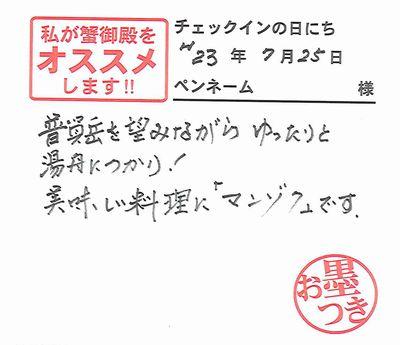 私が蟹御殿を
オススメ
します!!
チェックインの日にち
H23年7月25日
ペンネーム 様
普賢岳を望みながら ゆったりと
湯舟につかり!
美味しい料理に「マンゾク」です.
お墨
つき